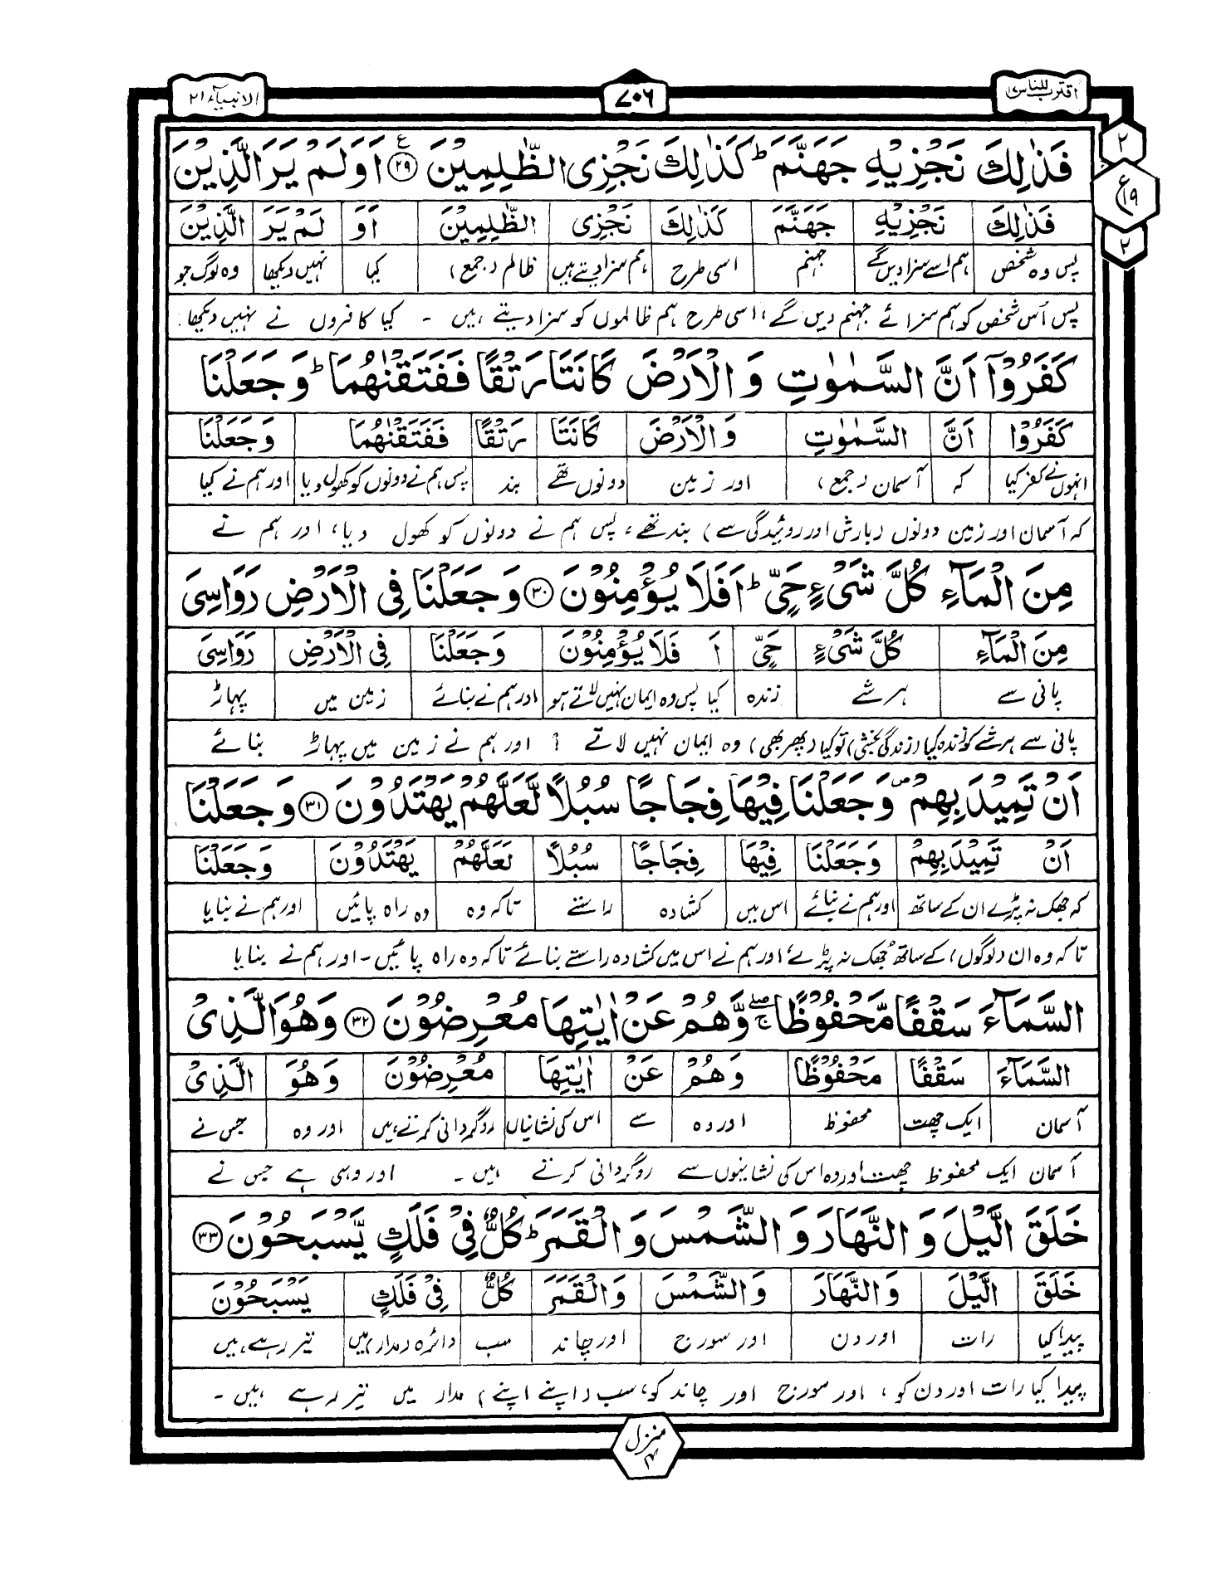 اقترب للناس ۱۷
۷۰۶
الانبیآء ۲۱
فَذٰلِكَ نَجْزِیْهِ جَهَنَّمَ ؕ كَذٰلِكَ نَجْزِی الظّٰلِمِیْنَ ۲۹ اَوَ لَمْ یَرَ الَّذِیْنَ
۲
ع ۱۹
۲
فَذٰلِكَ نَجْزِیْهِ جَهَنَّمَ كَذٰلِكَ نَجْزِی الظّٰلِمِیْنَ اَوَ لَمْ یَرَ الَّذِیْنَ
پس وہ شخص ہم اسے سزا دیں گے جہنم اسی طرح ہم سزا دیتے ہیں ظالم (جمع) کیا نہیں دیکھا وہ لوگ جو
پس اُس شخص کو ہم سزائے جہنم دیں گے، اسی طرح ہم ظالموں کو سزا دیتے ہیں ۔ کیا کافروں نے نہیں دیکھا
كَفَرُوْۤا اَنَّ السَّمٰوٰتِ وَ الْاَرْضَ كَانَتَا رَتْقًا فَفَتَقْنٰهُمَا ؕ وَ جَعَلْنَا
كَفَرُوْۤا اَنَّ السَّمٰوٰتِ وَ الْاَرْضَ كَانَتَا رَتْقًا فَفَتَقْنٰهُمَا وَ جَعَلْنَا
انہوں نے کفر کیا کہ آسمان (جمع) اور زمین دونوں تھے بند پس ہم نے دونوں کو کھول دیا اور ہم نے کیا
کہ آسمان اور زمین دونوں (بارش اور روئیدگی سے) بند تھے، پس ہم نے دونوں کو کھول دیا، اور ہم نے
مِنَ الْمَآءِ كُلَّ شَیْءٍ حَیٍّ ؕ اَفَلَا یُؤْمِنُوْنَ ۳۰ وَ جَعَلْنَا فِی الْاَرْضِ رَوَاسِیَ
مِنَ الْمَآءِ كُلَّ شَیْءٍ حَیٍّ اَ فَلَا یُؤْمِنُوْنَ وَ جَعَلْنَا فِی الْاَرْضِ رَوَاسِیَ
پانی سے ہر شے زندہ کیا پس وہ ایمان نہیں لاتے ہو اور ہم نے بنائے زمین میں پہاڑ
پانی سے ہر شے کو زندہ کیا (زندگی بخشی) تو کیا (پھر بھی) وہ ایمان نہیں لاتے ؟ اور ہم نے زمین میں پہاڑ بنائے
اَنْ تَمِیْدَ بِهِمْ ۪ وَ جَعَلْنَا فِیْهَا فِجَاجًا سُبُلًا لَّعَلَّهُمْ یَهْتَدُوْنَ ۳۱ وَ جَعَلْنَا
اَنْ تَمِیْدَ بِهِمْ وَ جَعَلْنَا فِیْهَا فِجَاجًا سُبُلًا لَعَلَّهُمْ یَهْتَدُوْنَ وَ جَعَلْنَا
کہ جھک نہ پڑے ان کے ساتھ اور ہم نے بنائے اس میں کشادہ راستے تاکہ وہ وہ راہ پائیں اور ہم نے بنایا
تاکہ وہ ان (لوگوں) کے ساتھ جُھک نہ پڑے اور ہم نے اس میں کشادہ راستے بنائے تاکہ وہ راہ پائیں ۔ اور ہم نے بنایا
السَّمَآءَ سَقْفًا مَّحْفُوْظًا ۖۚ وَّ هُمْ عَنْ اٰیٰتِهَا مُعْرِضُوْنَ ۳۲ وَ هُوَ الَّذِیْ
السَّمَآءَ سَقْفًا مَحْفُوْظًا وَ هُمْ عَنْ اٰیٰتِهَا مُعْرِضُوْنَ وَ هُوَ الَّذِیْ
آسمان ایک چھت محفوظ اور وہ سے اس کی نشانیاں روگردانی کرتے ہیں اور وہ جس نے
آسمان ایک محفوظ چھت اور وہ اس کی نشانیوں سے روگردانی کرتے ہیں ۔ اور وہی ہے جس نے
خَلَقَ الَّیْلَ وَ النَّهَارَ وَ الشَّمْسَ وَ الْقَمَرَ ؕ كُلٌّ فِیْ فَلَكٍ یَّسْبَحُوْنَ ۳۳
خَلَقَ الَّیْلَ وَ النَّهَارَ وَ الشَّمْسَ وَ الْقَمَرَ كُلٌّ فِیْ فَلَكٍ یَسْبَحُوْنَ
پیدا کیا رات اور دن اور سورج اور چاند سب دائرہ (مدار) میں تیر رہے ہیں
پیدا کیا رات اور دن کو، اور سورج اور چاند کو، سب (اپنے اپنے) مدار میں تیر رہے ہیں ۔
منزل ۴